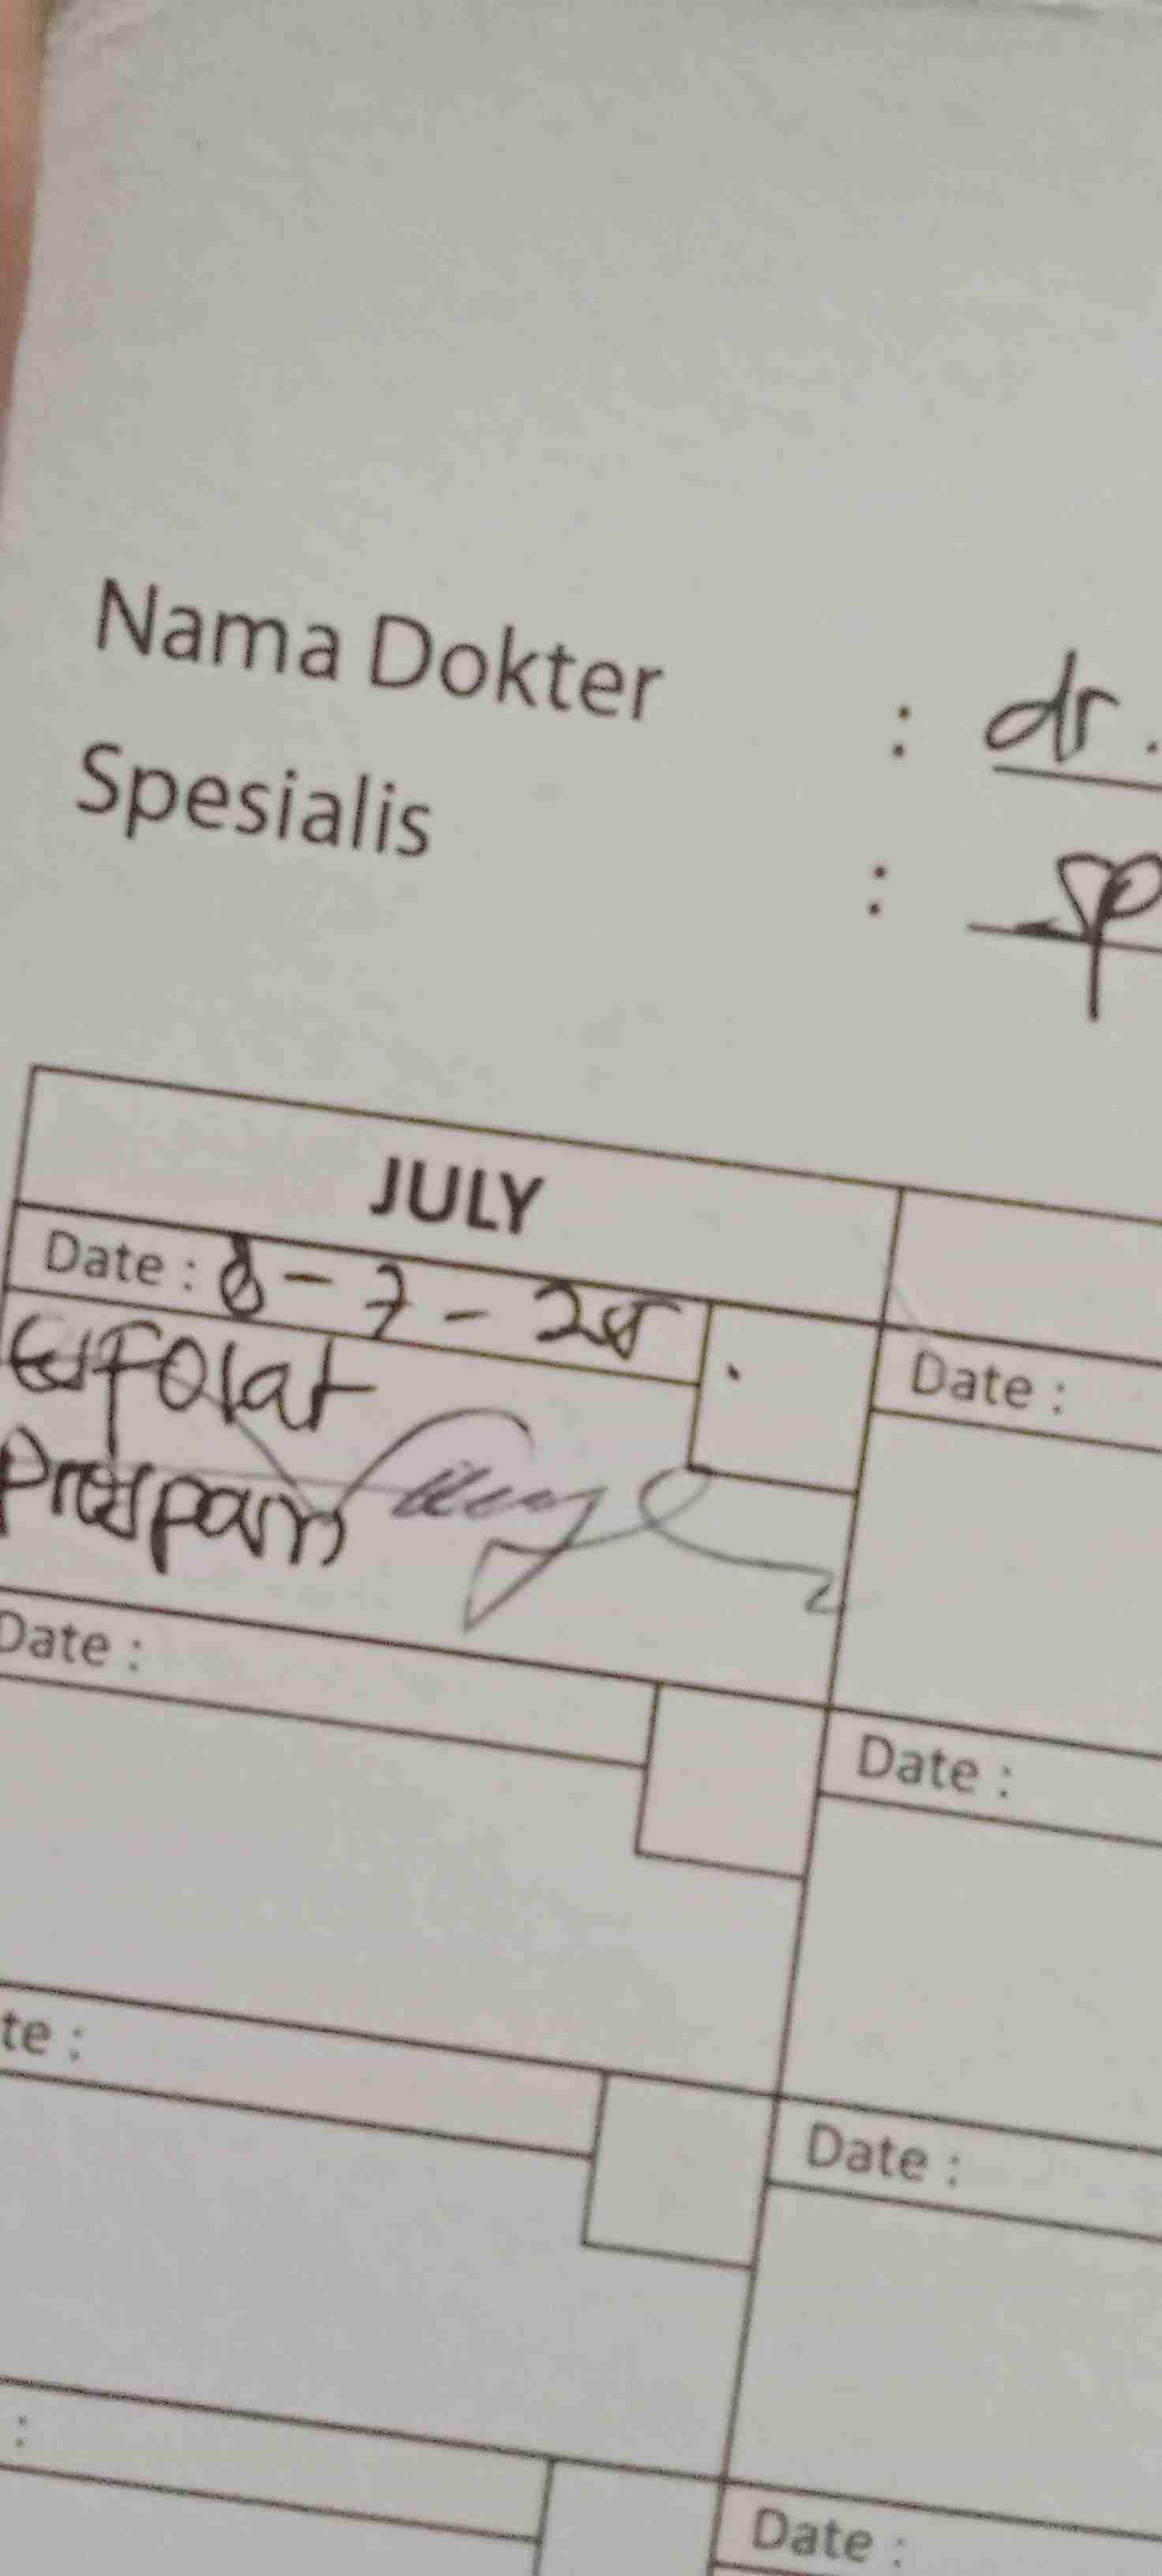 Nama Dokter : dr.
Spesialis : Sp
JULY
Date : 8 - 7 - 25
Date :
Date :
Date :
te :
Date :
:
Date :